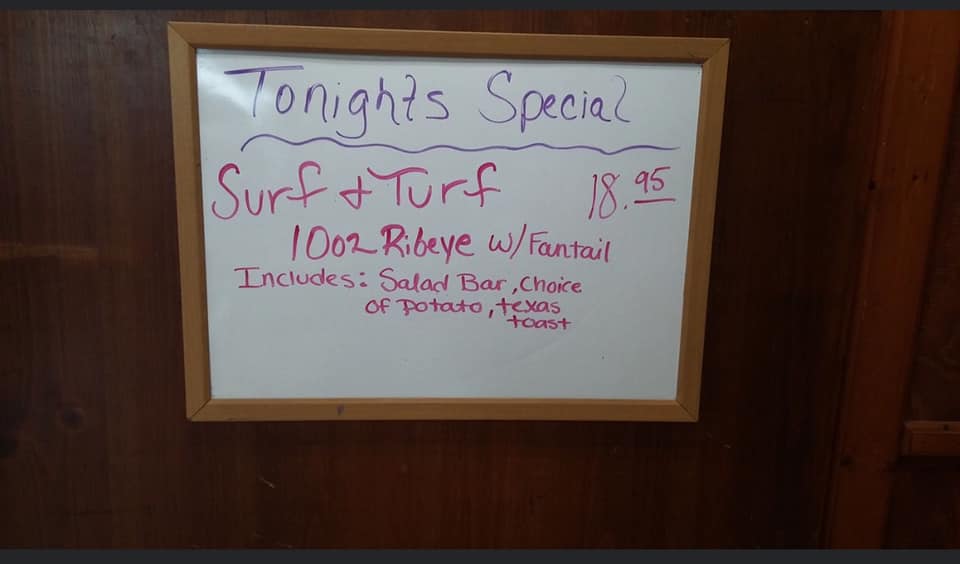 Tonights Special
Surf + Turf 18.95
10oz Ribeye w/ Fantail
Includes: Salad Bar, Choice
of potato, texas
toast